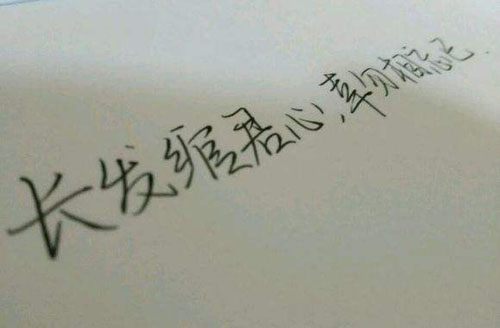 长发绾君心，幸勿相忘记.